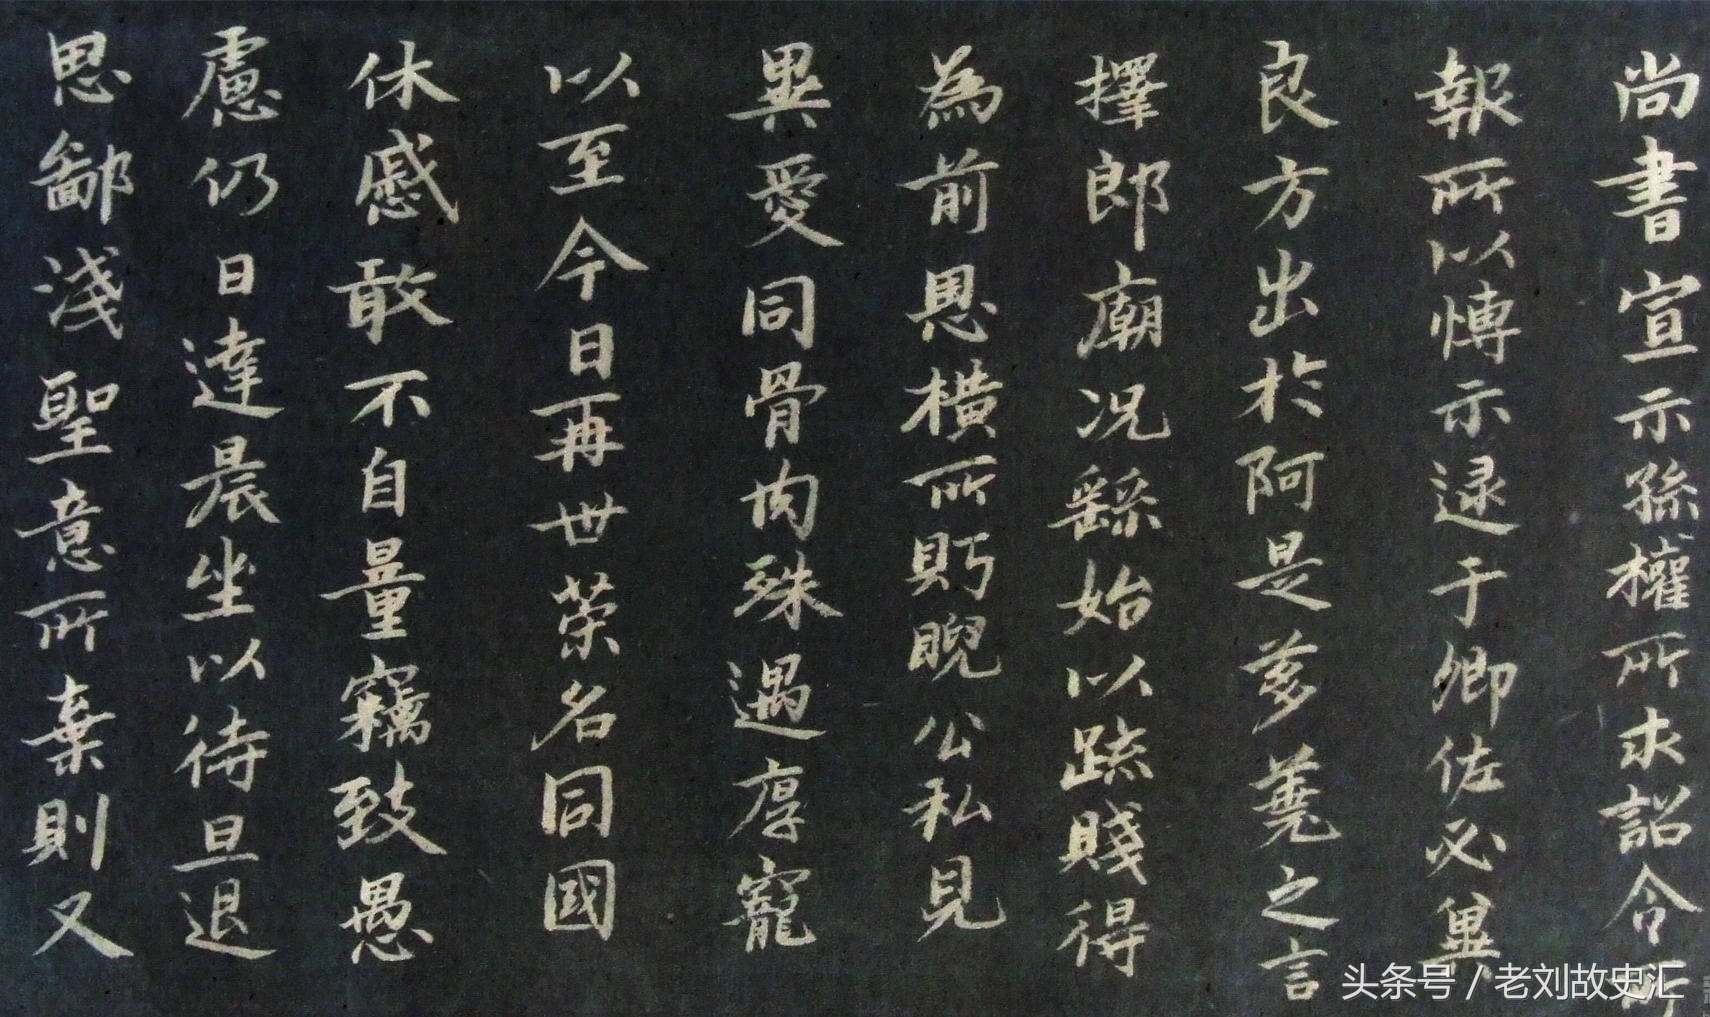 尚書宣示孫權所求詔令所
報所以慱示逯于卿佐必冀
良方出於阿是芻蕘之言
擇郎廟况繇始以䟽賤得
為前恩橫所眄睨公私見
異愛同骨肉殊遇厚寵
以至今日再世荣名同國
休慼敢不自量竊致愚
慮仍日達晨坐以待旦退
思鄙淺聖意所棄則又
头条号 / 老刘故史汇